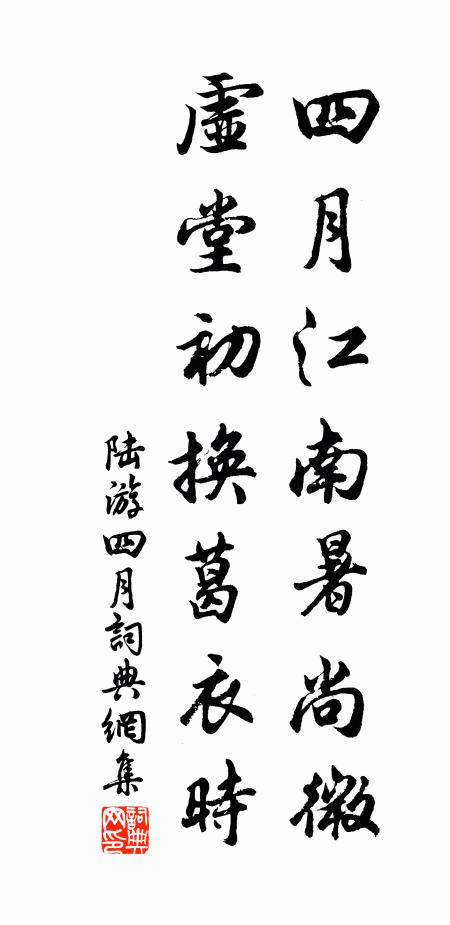 四月江南暑尚微
虛堂初換葛衣時
陆游四月詞典網集
詞典网印